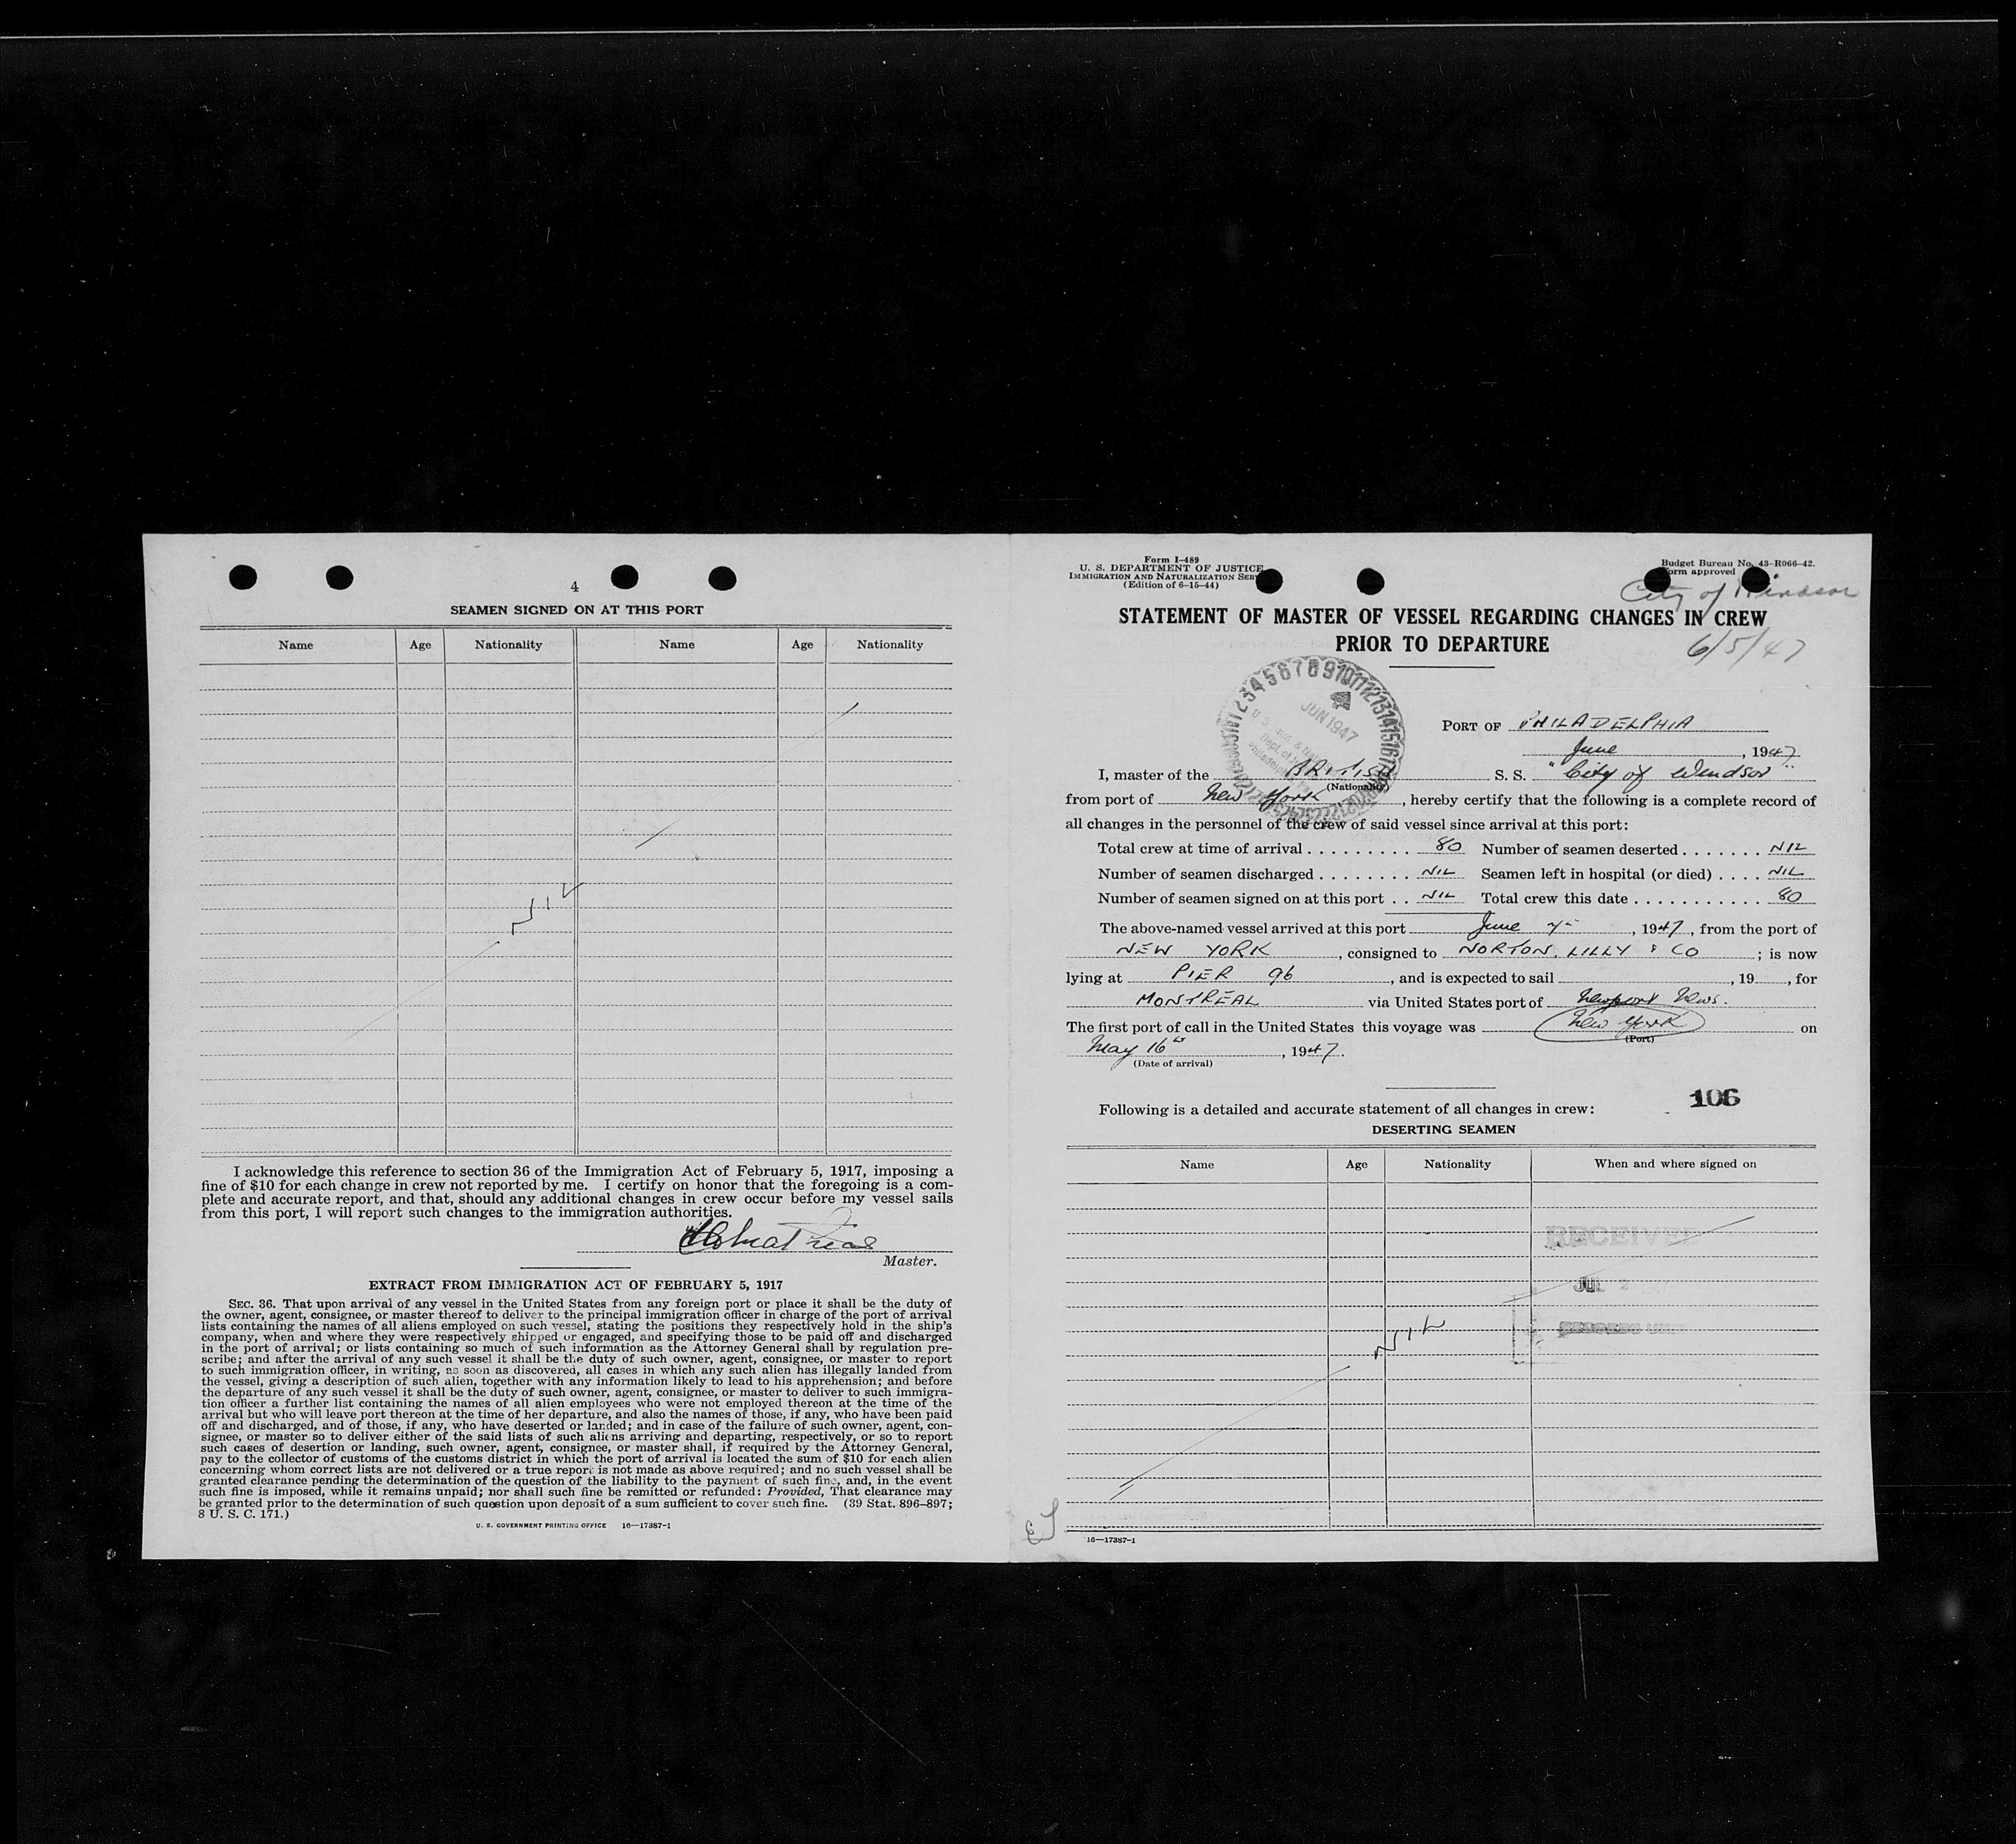 4
SEAMEN SIGNED ON AT THIS PORT
Name Age Nationality Name Age Nationality
NIL
I acknowledge this reference to section 36 of the Immigration Act of February 5, 1917, imposing a
fine of $10 for each change in crew not reported by me. I certify on honor that the foregoing is a com-
plete and accurate report, and that, should any additional changes in crew occur before my vessel sails
from this port, I will report such changes to the immigration authorities.
Master.
EXTRACT FROM IMMIGRATION ACT OF FEBRUARY 5, 1917
SEC. 36. That upon arrival of any vessel in the United States from any foreign port or place it shall be the duty of
the owner, agent, consignee, or master thereof to deliver to the principal immigration officer in charge of the port of arrival
lists containing the names of all aliens employed on such vessel, stating the positions they respectively hold in the ship's
company, when and where they were respectively shipped or engaged, and specifying those to be paid off and discharged
in the port of arrival; or lists containing so much of such information as the Attorney General shall by regulation pre-
scribe; and after the arrival of any such vessel it shall be the duty of such owner, agent, consignee, or master to report
to such immigration officer, in writing, as soon as discovered, all cases in which any such alien has illegally landed from
the vessel, giving a description of such alien, together with any information likely to lead to his apprehension; and before
the departure of any such vessel it shall be the duty of such owner, agent, consignee, or master to deliver to such immigra-
tion officer a further list containing the names of all alien employees who were not employed thereon at the time of the
arrival but who will leave port thereon at the time of her departure, and also the names of those, if any, who have been paid
off and discharged, and of those, if any, who have deserted or landed; and in case of the failure of such owner, agent, con-
signee, or master so to deliver either of the said lists of such aliens arriving and departing, respectively, or so to report
such cases of desertion or landing, such owner, agent, consignee, or master shall, if required by the Attorney General,
pay to the collector of customs of the customs district in which the port of arrival is located the sum of $10 for each alien
concerning whom correct lists are not delivered or a true report is not made as above required; and no such vessel shall be
granted clearance pending the determination of the question of the liability to the payment of such fine, and, in the event
such fine is imposed, while it remains unpaid; nor shall such fine be remitted or refunded: Provided, That clearance may
be granted prior to the determination of such question upon deposit of a sum sufficient to cover such fine. (39 Stat. 896–897;
8 U. S. C. 171.)
U. S. GOVERNMENT PRINTING OFFICE 16—17387-1
Form I-489
U. S. DEPARTMENT OF JUSTICE
IMMIGRATION AND NATURALIZATION SER
(Edition of 6-15-44)
Budget Bureau No. 43-R066-42.
Form approved
City of Windsor
STATEMENT OF MASTER OF VESSEL REGARDING CHANGES IN CREW
PRIOR TO DEPARTURE
6/5/47
JUN 1947
PORT OF PHILADELPHIA
June, 1947
I, master of the BRITISH S. S. "City of Windsor"
(Nationality)
from port of New York, hereby certify that the following is a complete record of
all changes in the personnel of the crew of said vessel since arrival at this port:
Total crew at time of arrival . . . . . . . . . 80 Number of seamen deserted . . . . . . . NIL
Number of seamen discharged . . . . . . . . NIL Seamen left in hospital (or died) . . . . NIL
Number of seamen signed on at this port . . NIL Total crew this date . . . . . . . . . . . 80
The above-named vessel arrived at this port June, 1947, from the port of
NEW YORK, consigned to NORTON, LILLY & CO; is now
lying at PIER 96, and is expected to sail , 19 , for
MONTREAL via United States port of Newport News.
The first port of call in the United States this voyage was New York on
(Port)
May 16th, 1947.
(Date of arrival)
106
Following is a detailed and accurate statement of all changes in crew:
DESERTING SEAMEN
Name Age Nationality When and where signed on
RECEIVED
JUL 2
NIL
16—17387-1